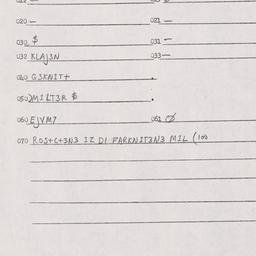 020 — 021 —
030 $ 031 —
032 KLAJ3N 033 —
040 G3KNIT+
050 M1LT3R $
060 EJVM7 061 Ø
070 ROS+C+3N3 1Z D1 FARKN1T3N3 M1L (100